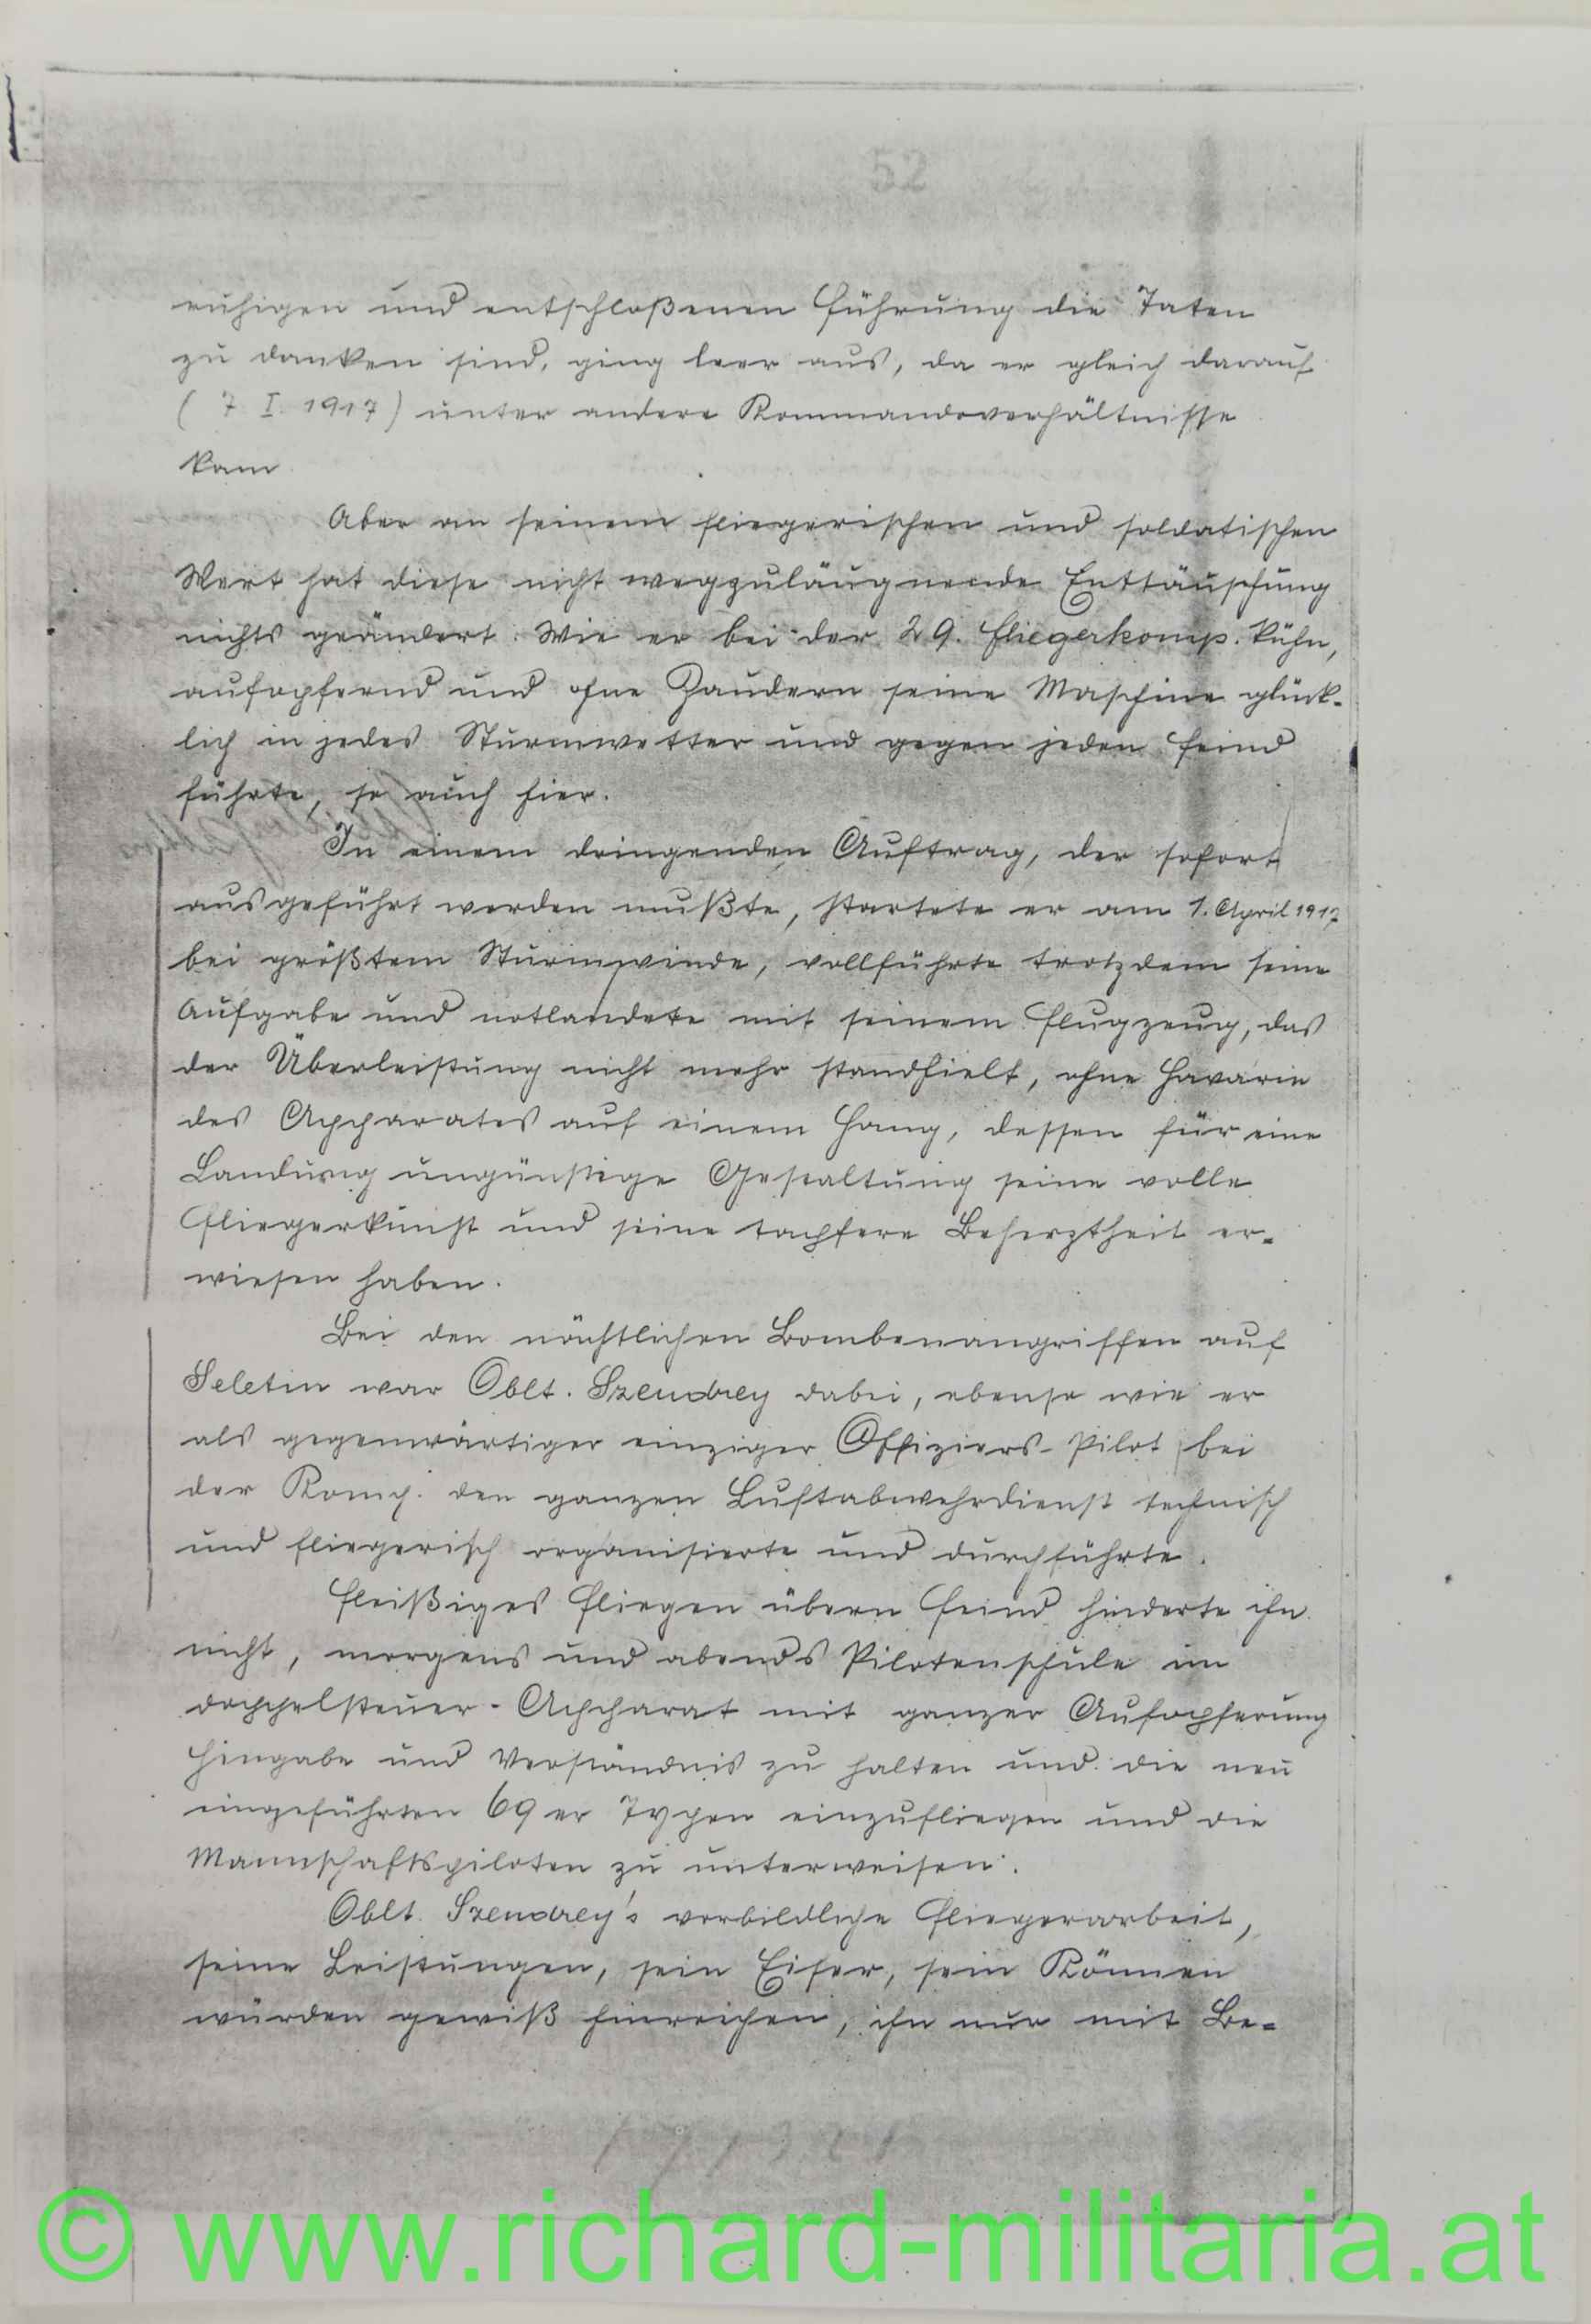 52
ruhigen und entschloßenen Führung die Taten
zu danken sind, ging leer aus, da er gleich darauf
( 7. I. 1917) unter andere Kommandoverhältnisse
kam
Aber an seinem fliegerischen und soldatischen
Wert hat diese nicht wegzuläugnende Enttäuschung
nichts geändert. Wie er bei der 29. Fliegerkomp. kühn,
aufopfernd und ohne Zaudern seine Maschine glück-
lich in jedes Sturmwetter und gegen jeden Feind
führte, so auch hier.
In einem dringenden Auftrag, der sofort
ausgeführt werden mußte, startete er am 1. April 1917
bei größtem Sturmwinde, vollführte trotzdem seine
Aufgabe und notlandete mit seinem Flugzeug, das
der Überleistung nicht mehr standhielt, ohne Havarie
des Apparates auf einem Hang, dessen für eine
Landung ungünstige Gestaltung seine volle
Fliegerkunst und seine tapfere Beherztheit er-
wiesen haben.
Bei den nächtlichen Bombenangriffen auf
Seletin war Oblt. Szendrey dabei, ebenso wie er
als gegenwärtiger einziger Offiziers-Pilot bei
der Komp. den ganzen Luftabwehrdienst technisch
und fliegerisch organisierte und durchführte.
Fleißiges Fliegen übern Feind hinderte ihn
nicht, morgens und abends Pilotenschule im
Doppelsteuer-Apparat mit ganzer Aufopferung
Hingabe und Verständnis zu halten und die neu
eingeführten 69er Typen einzufliegen und die
Mannschaftspiloten zu unterweisen.
Oblt. Szendrey's vorbildliche Fliegerarbeit,
seine Leistungen, sein Eifer, sein Können
würden gewiß hinreichen, ihn nur mit Be-
© www.richard-militaria.at